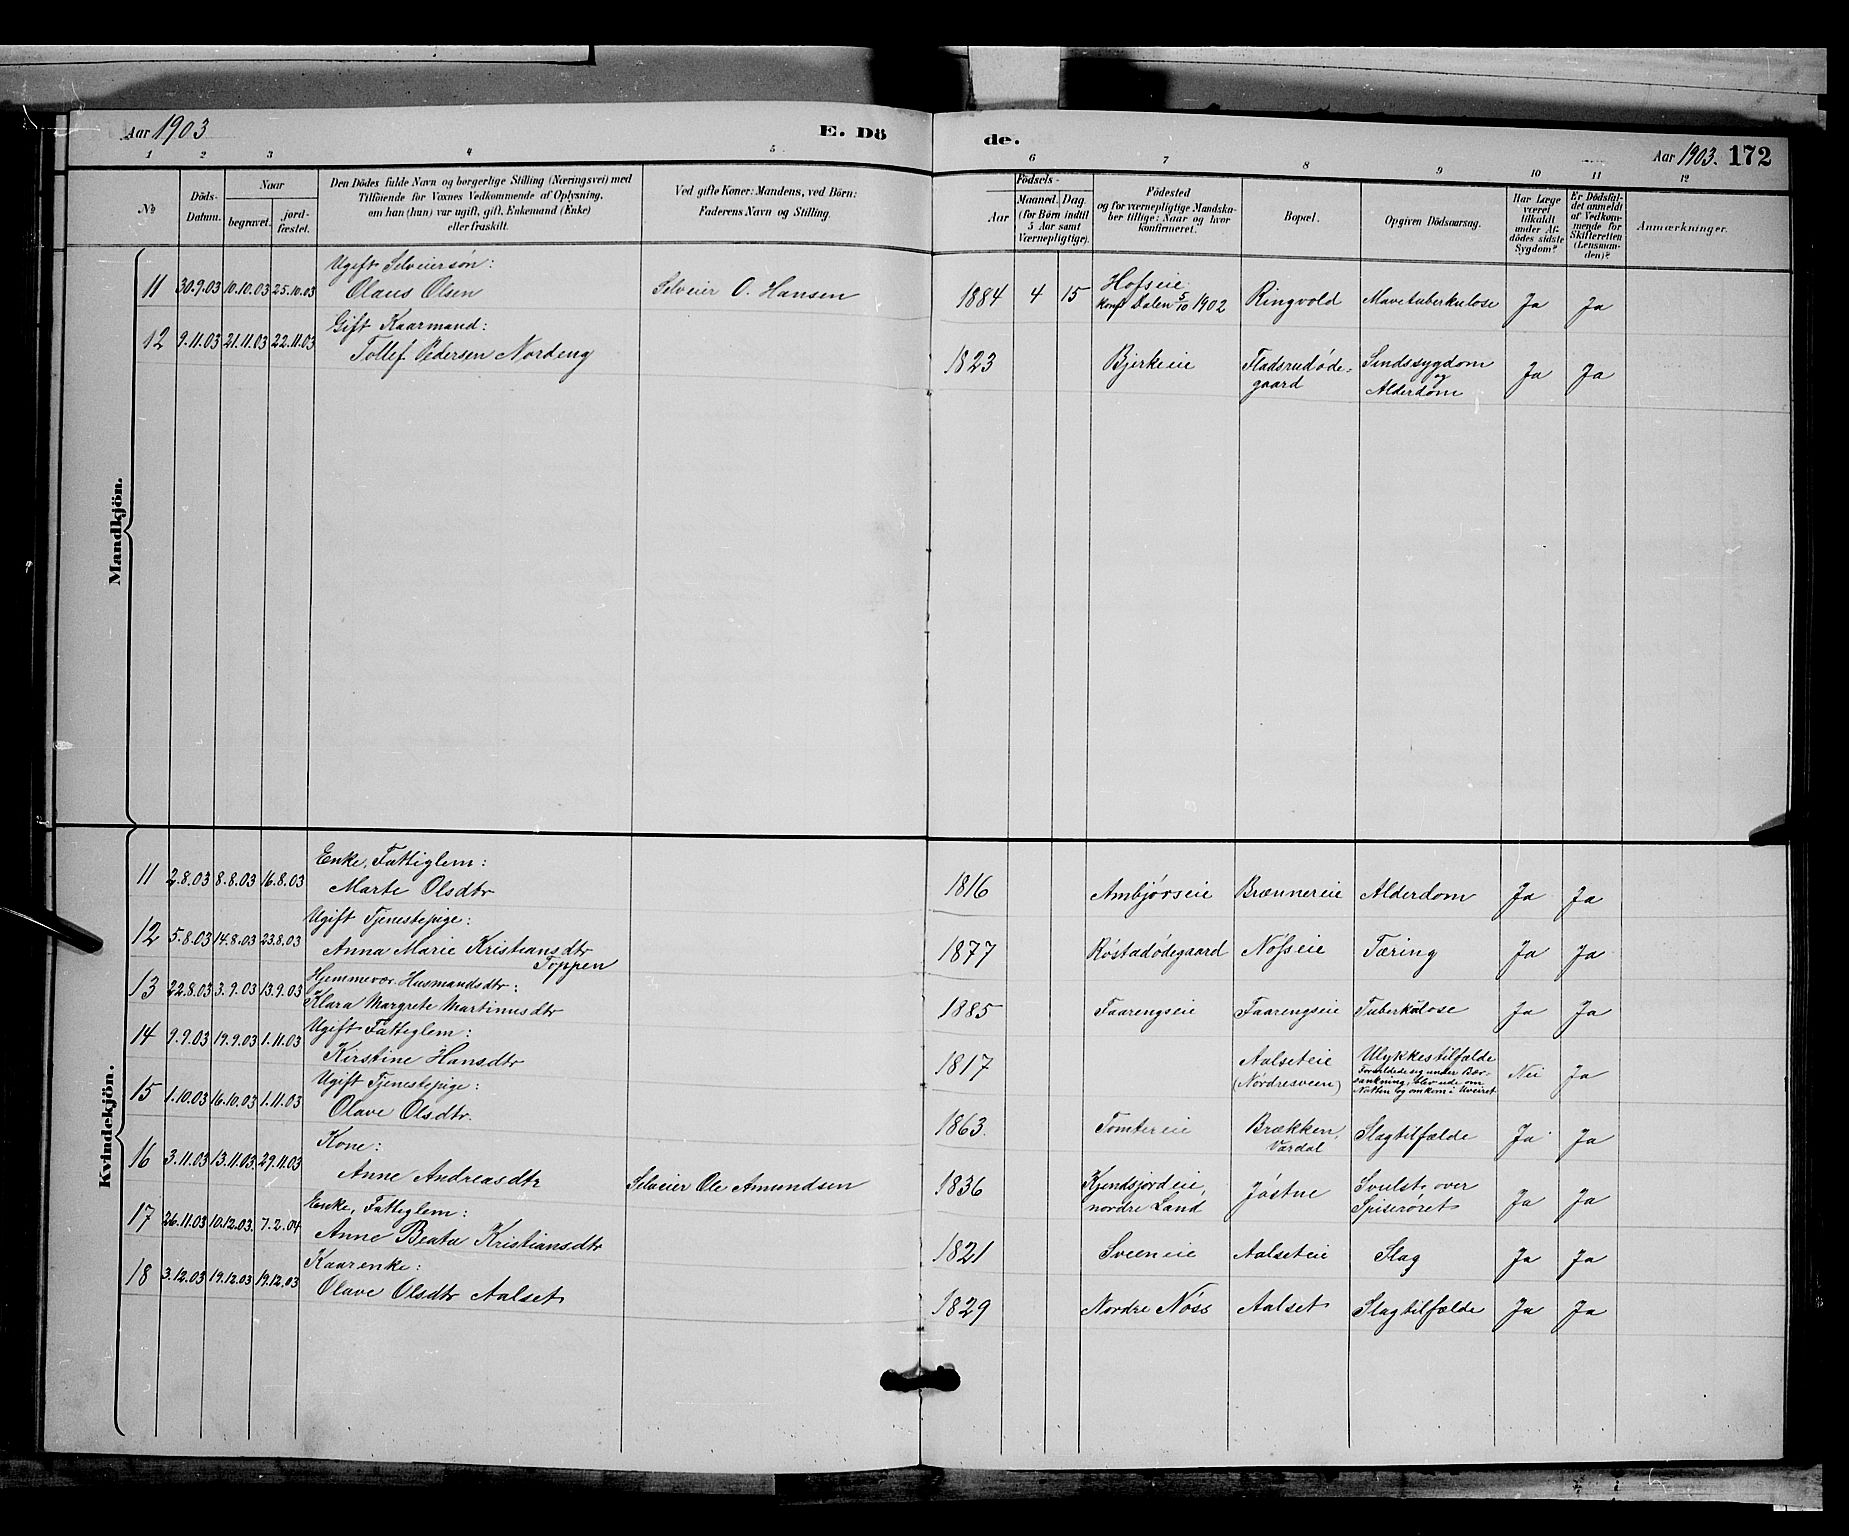 Aar 1903
E. Dö
de.
Aar 1903. 172
1 2 3 4 5 6 7 8 9 10 11 12
No
Döds-
Datum.
Naar
begravet.
jord-
fæstet.
Den Dödes fulde Navn og borgerlige Stilling (Næringsvei) med
Tilföiende for Voxnes Vedkommende af Oplysning,
om han (hun) var ugift, gift, Enkemand (Enke)
eller fraskilt.
Ved gifte Koner: Mandens, ved Börn:
Faderens Navn og Stilling.
Födsels-
Aar
Maaned. Dag.
(for Börn indtil
5 Aar samt
Værnepligtige).
Födested
og for værnepligtige Mandska-
ber tillige: Naar og hvor
konfirmeret.
Bopæl.
Opgiven Dödsaarsag.
Har Læge
været
tilkaldt
under Af-
dödes sidste
Sygdom?
Er Dödsfal-
det anmeldt
af Vedkom-
mende for
Skifteretten
(Lensman-
den)?
Anmærkninger.
Mandkjön.
Ugift Selveiersøn:
11 30.9.03 10.10.03 25.10.03 Olaus Olsen Selveier O. Hansen 1884 4 15 Hofseie
Konf. Dalen 5/10 1902 Ringvold Mavetuberkulose Ja Ja
Gift Kaarmand:
12 9.11.03 21.11.03 22.11.03 Tollef Pedersen Nordeng 1823 Bjerkeie Fladsrudøde-
gaard Sindssygdom
og
Alderdom Ja Ja
Kvindekjön.
Enke, Fattiglem:
11 2.8.03 8.8.03 16.8.03 Marte Olsdtr 1816 Ambjørseie Brænnereie Alderdom Ja Ja
Ugift Tjenestepige:
12 5.8.03 14.8.03 23.8.03 Anna Marie Kristiansdtr
Toppen 1877 Røstadødegaard Nøsseie Tæring Ja Ja
Hjemmevær. Husmandsdtr:
13 22.8.03 3.9.03 13.9.03 Klara Margrete Martinusdtr 1885 Faarengseie Faarengseie Tuberkulose Ja Ja
Ugift Fattiglem:
14 9.9.03 19.9.03 1.11.03 Kirstine Hansdtr 1817 Aalseteie
(Nordresveen) Ulykkestilfælde
Forvildede sig under Bær-
sankning, blev ude om
Natten og omkom i Uveiret Nei Ja
Ugift Tjenestepige:
15 1.10.03 16.10.03 1.11.03 Olave Olsdtr. 1863. Tomtereie Brækken,
Vardal Slagtilfælde Ja Ja
Kone:
16 3.11.03 13.11.03 29.11.03 Anne Andreasdtr Selveier Ole Amundsen 1836 Kjendsjordeie,
nordre Land Jøstne Svulst over
Spiserøret Ja Ja
Enke, Fattiglem:
17 26.11.03 10.12.03. 7.2.04 Anne Beate Kristiansdtr 1821 Sveeneie Aalseteie Slag Ja Ja
Kaarenke:
18 3.12.03 19.12.03 19.12.03 Olave Olsdtr Aalset 1829 Nordre Nøss Aalset Slagtilfælde Ja Ja